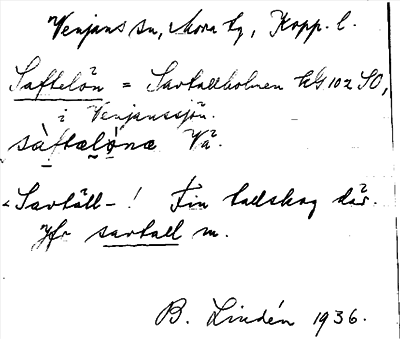 Venjans sn, Mora tg, Kopp. l.
Saftelön = Savtallholmen kbl 102 SO,
i Venjanssjön.
sàftælǫ́næ Vä.
< Savtäll- ! Fin tallskog där.
Jfr savtall m.
B. Lindén 1936.